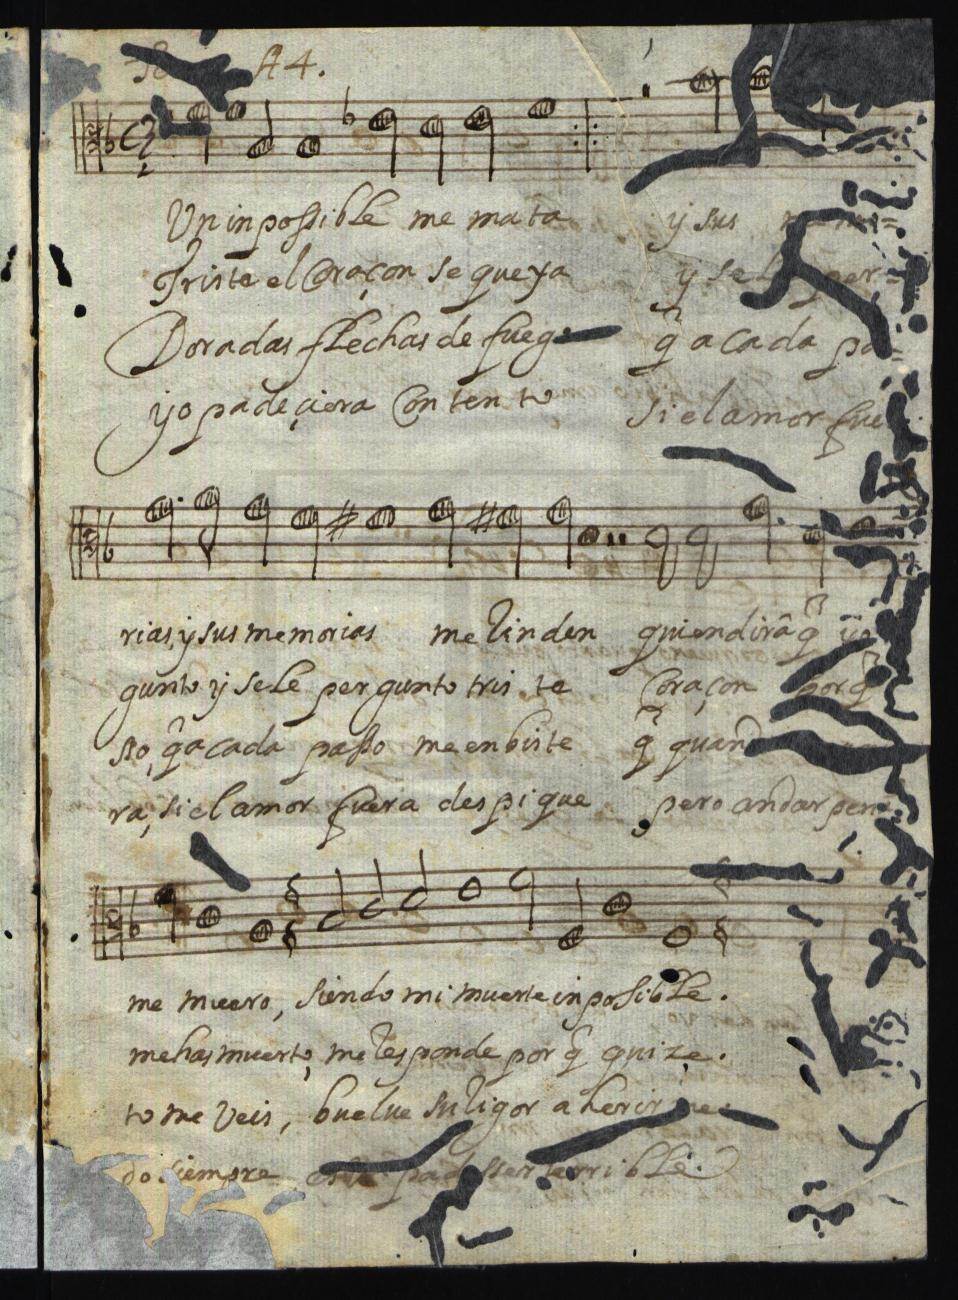 38 A 4.
Un inpossible me mata y sus
Triste el Coraçon se quexa y se
Doradas flechas de fueg q̃ a cada pa=
yo padeçiera Contento si el amor fue
rias, y sus memorias me rinden quien dirà q̃
gunto y se le pergunto triste Coraçon por q̃
sso, q̃ a cada passo me enbiste q̃ quand
ra, si el amor fuera despique pero andar pen
me muero, siendo mi muerte inposible.
me has muerto, me responde por q̃ quize.
to me veis, buelve su rigor a herir me
do siempre terrible.